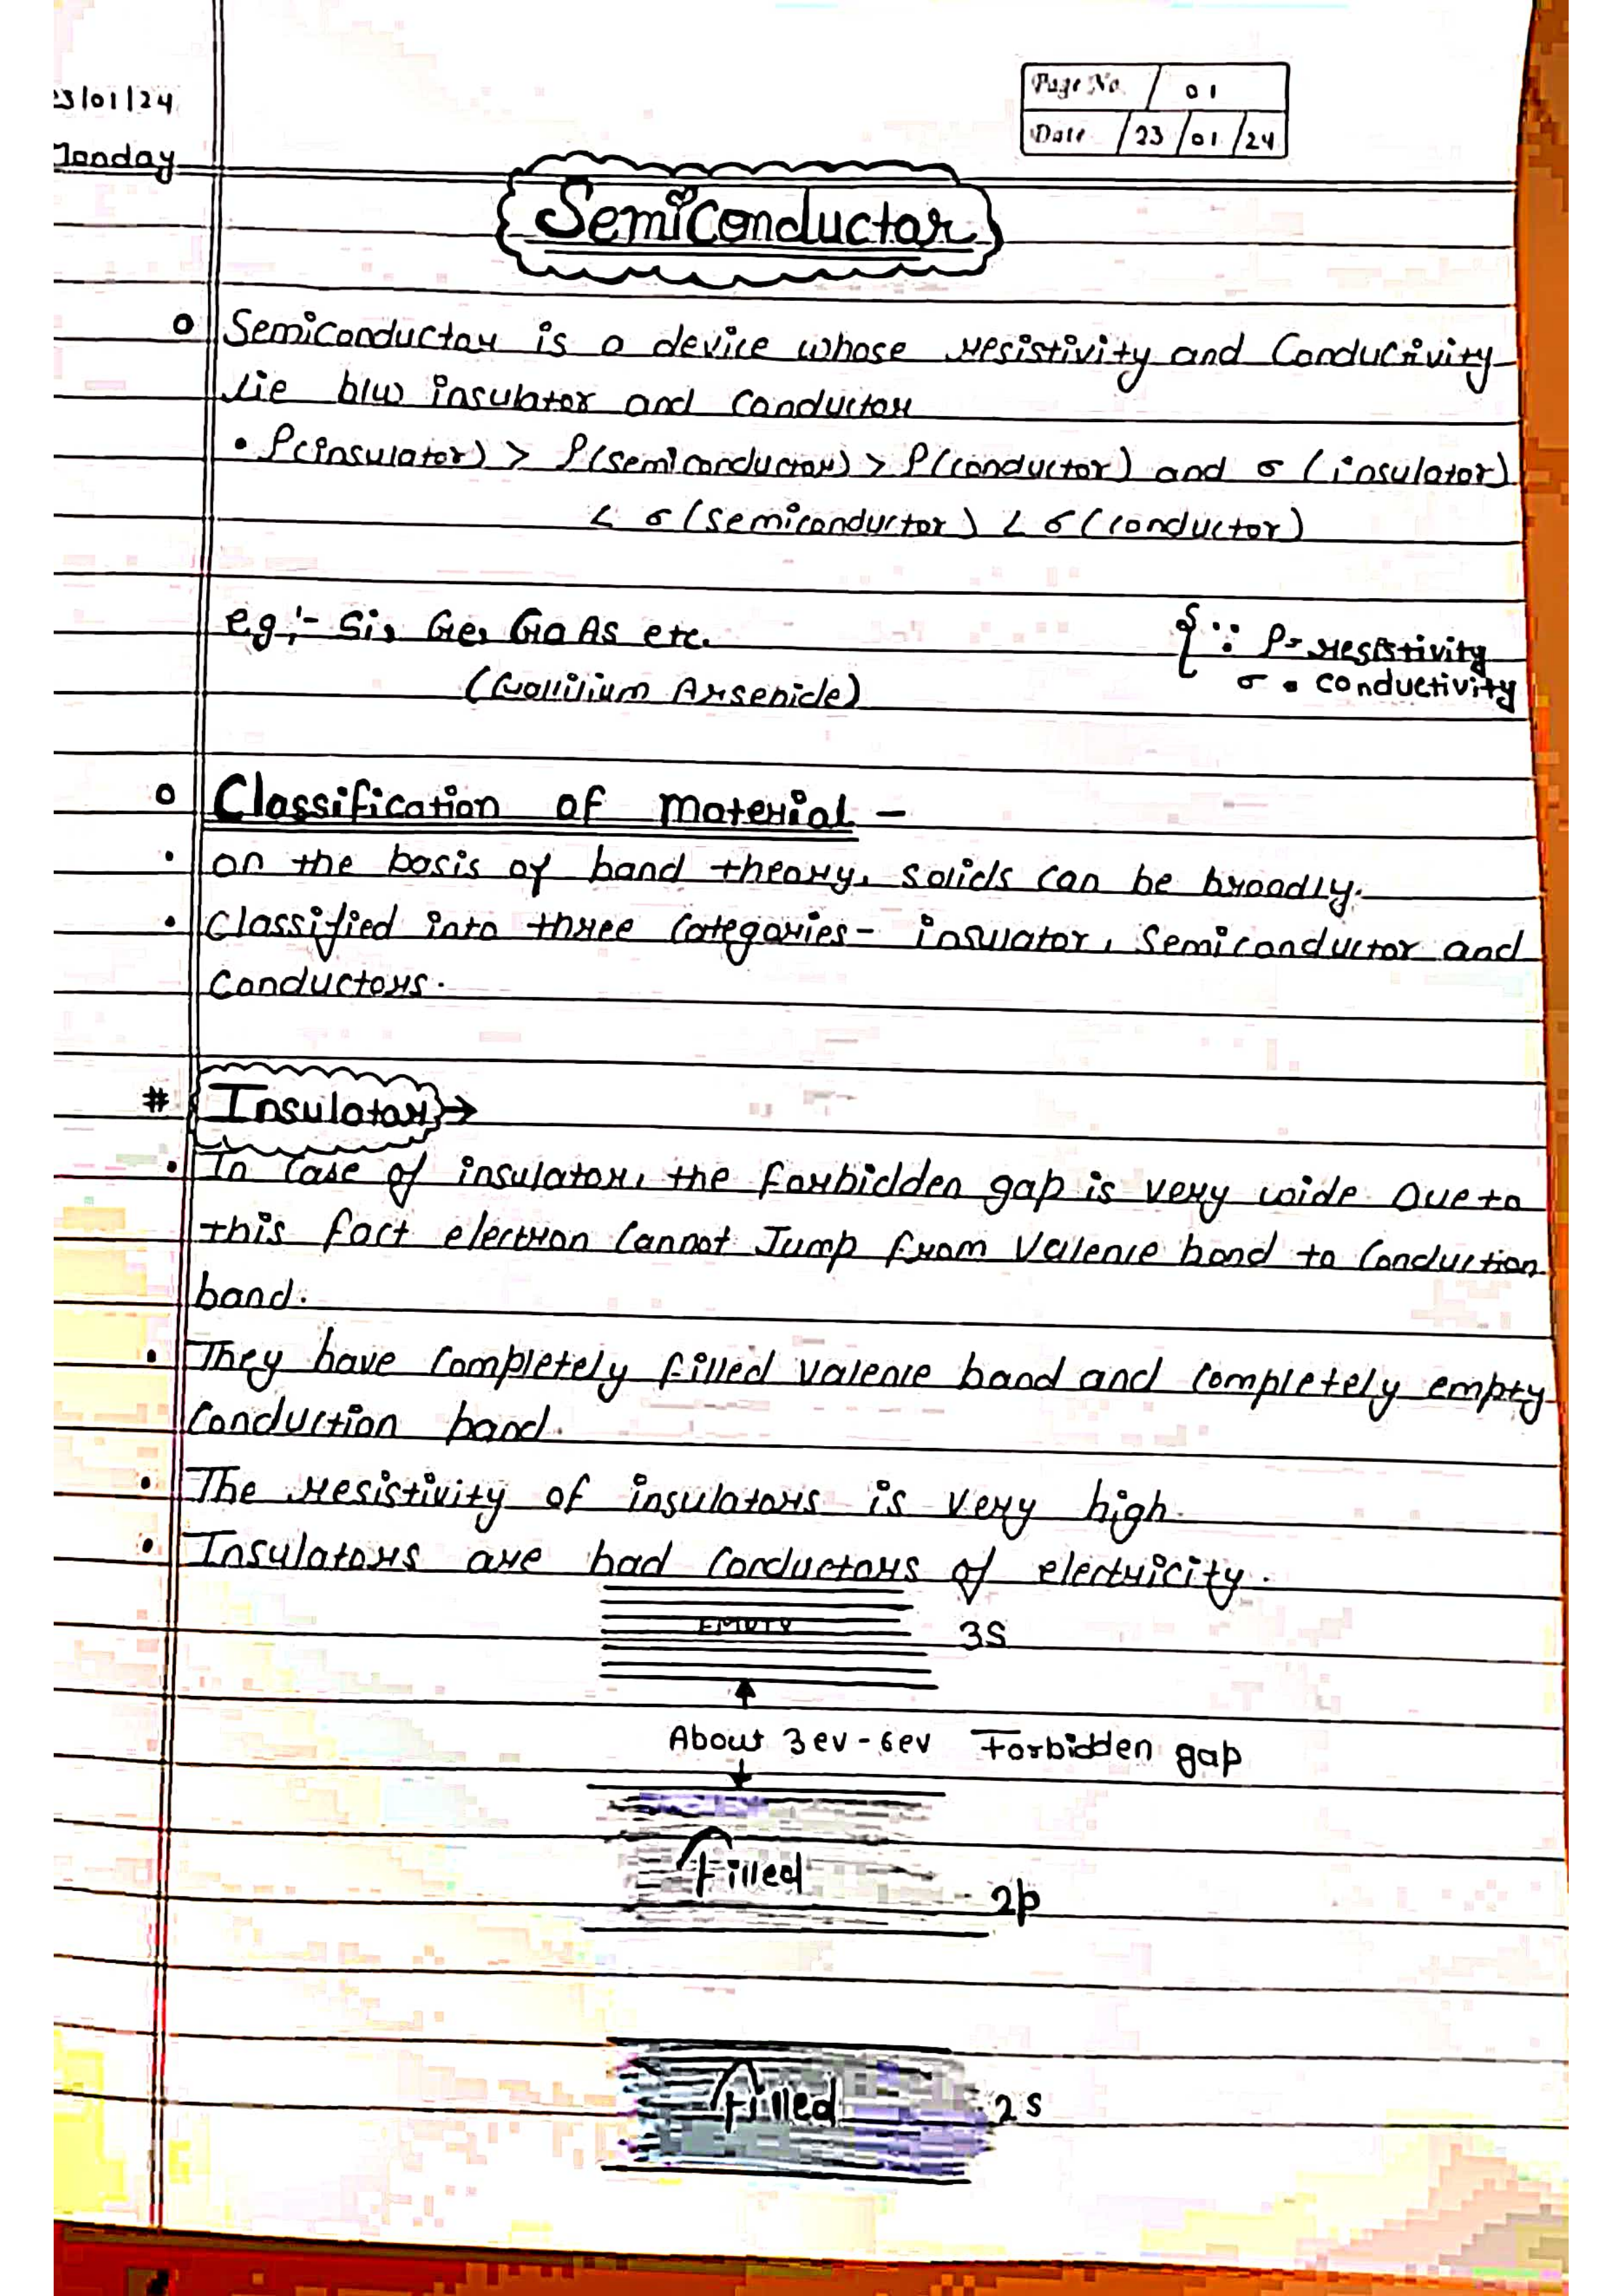 Page No. 01
23/01/24
Date 23/01/24
Monday
Semiconductor
Semiconductor is a device whose resistivity and Conductivity
lie b/w insulator and conductor
• ρ(insulator) > ρ(semiconductor) > ρ(conductor) and σ (insulator)
< σ (semiconductor) < σ (conductor)
eg:- Si, Ge, GaAs etc.
{ ∵ ρ= resistivity
(Gallilium Arsenide)
σ = conductivity
Classification of material -
• on the basis of band theory, solids can be broadly.
• Classified into three categories- insulator, semiconductor and
conductors.
# Insulator →
• In case of insulator, the forbidden gap is very wide Due to
this fact electron cannot Jump from valence band to conduction
band.
• They have completely filled valence band and completely empty
conduction band.
• The resistivity of insulators is very high.
• Insulators are bad conductors of electricity.
EMPTY 3S
About 3ev - 6ev Forbidden gap
Filled 2p
Filled 2s